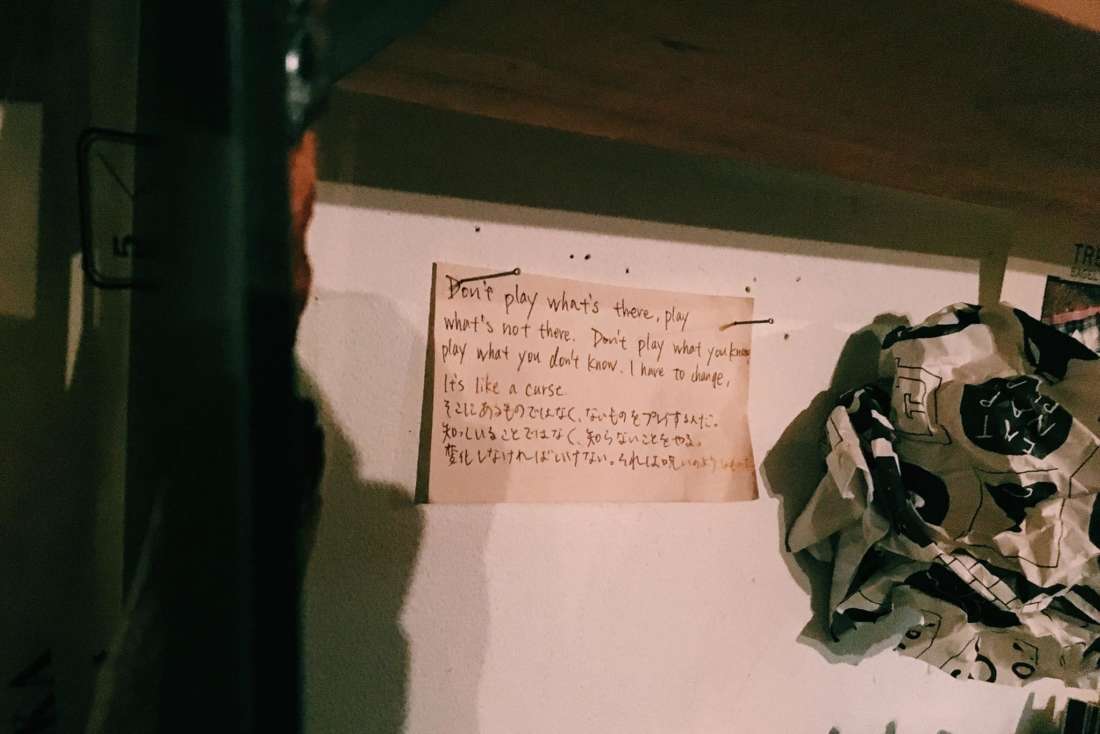 Don't play what's there, play
what's not there. Don't play what you know,
play what you don't know. I have to change,
It's like a curse.
そこにあるものではなく、ないものをプレイするんだ。
知っていることではなく、知らないことをやる。
変化しなければいけない。それは呪いのような
TRE
BAGEL
5